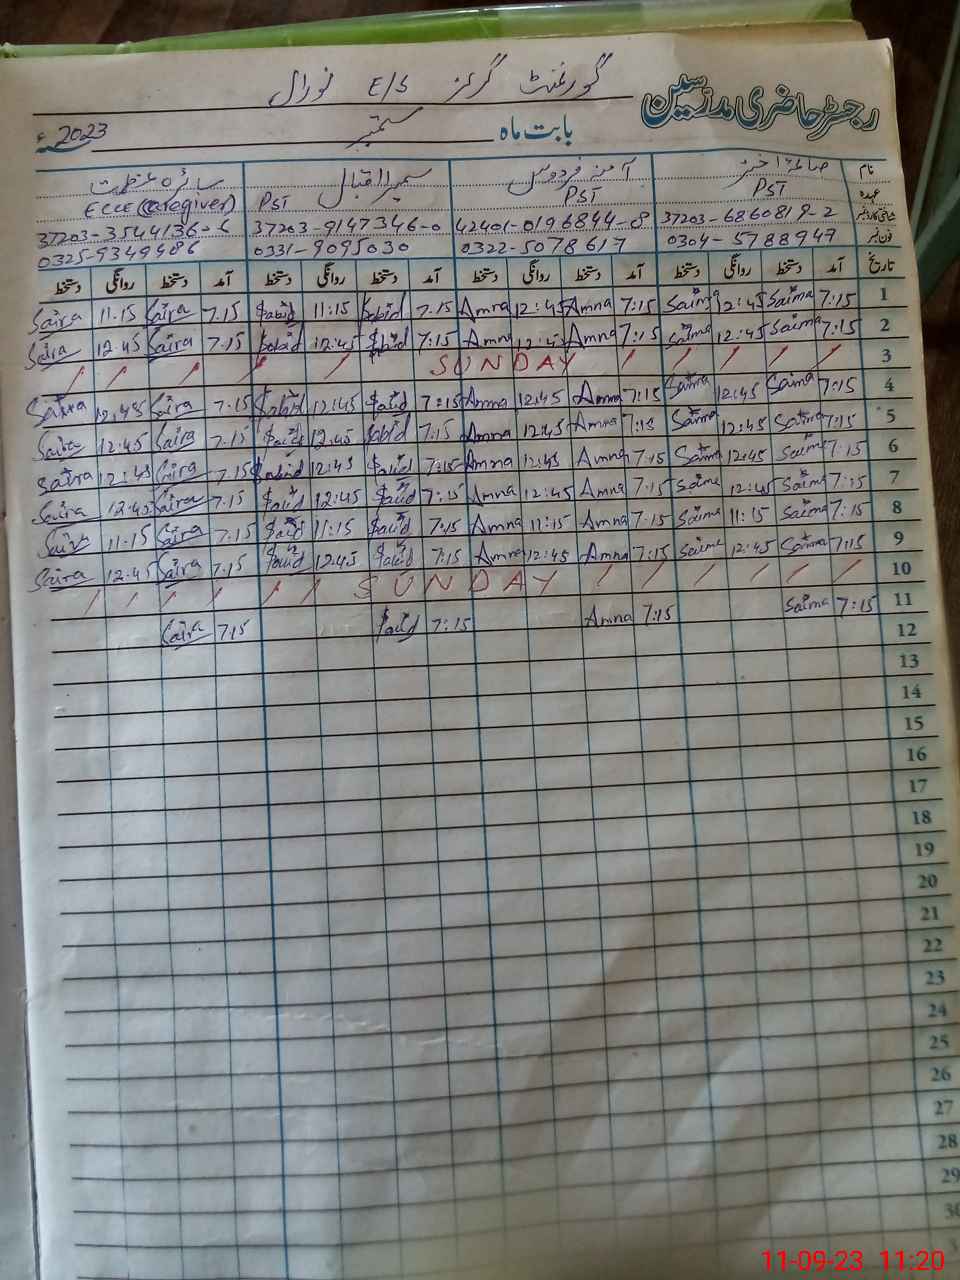 گورنمنٹ گرلز E/S نورال
رجسٹر حاضری مدرسین
بابت ماہ ستمبر 2023ء
نام صائمہ اختر آمنہ فردوس سمیرا اقبال سائرہ عظمت
عہدہ PST PST PST ECCE (Caregiver)
شناختی کارڈ نمبر 37203-6860819-2 42401-0196844-8 37203-9147346-0 37203-3544136-6
فون نمبر 0304-5788947 0322-5078617 0331-9095030 0325-9349486
تاریخ آمد دستخط روانگی دستخط آمد دستخط روانگی دستخط آمد دستخط روانگی دستخط آمد دستخط روانگی دستخط
1 7:15 Saima 12:45 Saima 7:15 Amna 12:45 Amna 7.15 11:15 7.15 Saira 11.15 Saira
2 7:15 Saima 12:45 Saima 7:15 Amna 12:45 Amna 7:15 12:45 7.15 Saira 12.45 Saira
3 SUNDAY
4 7:15 Saima 12:45 Saima 7:15 Amna 12:45 Amna 7:15 12:45 7.15 Saira 12:45 Saira
5 7:15 Saima 12:45 Saima 7:15 Amna 12:45 Amna 7.15 12.45 7.15 Saira 12.45 Saira
6 7:15 Saima 12:45 Saima 7:15 Amna 12:45 Amna 7:15 12:45 7.15 Saira 12:45 Saira
7 7:15 Saima 12:45 Saima 7:15 Amna 12:45 Amna 7:15 12:45 7.15 Saira 12.45 Saira
8 7:15 Saima 11:15 Saima 7:15 Amna 11:15 Amna 7:15 11:15 7.15 Saira 11.15 Saira
9 7:15 Saima 12:45 Saima 7:15 Amna 12:45 Amna 7:15 12:45 7.15 Saira 12.45 Saira
10 SUNDAY
11 7:15 Saima 7:15 Amna 7:15 7.15 Saira
12
13
14
15
16
17
18
19
20
21
22
23
24
25
26
27
28
29
30
11-09-23 11:20